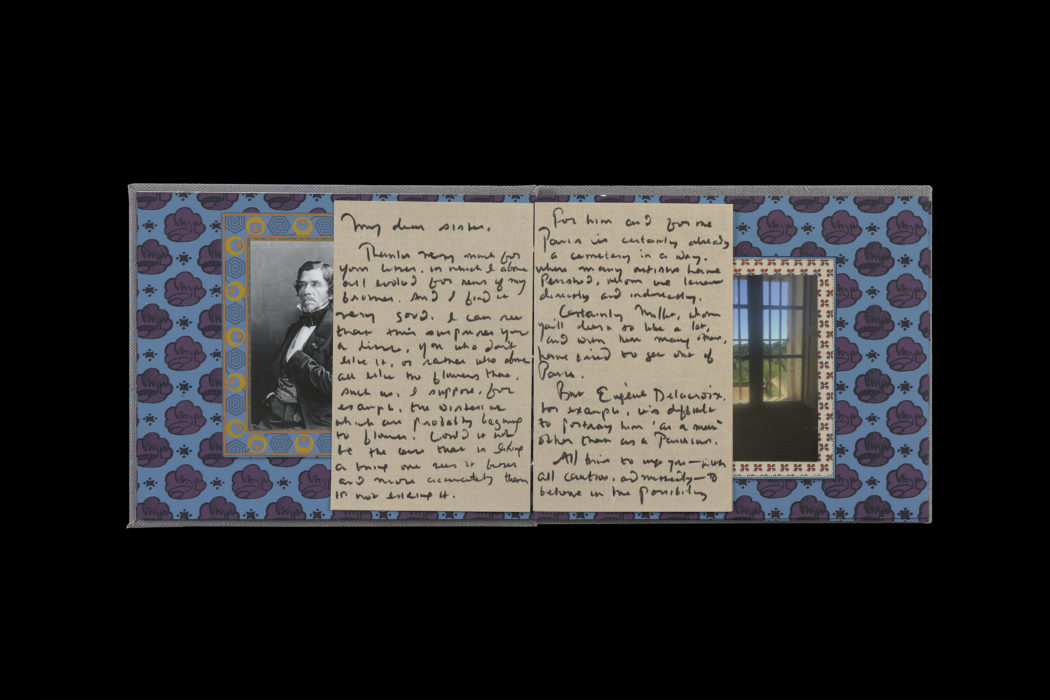 My dear sister,
Thanks very much for
your letter, in which I above
all looked for news of my
brother. And I find it
very good. I can see
that this surprises you
a little, you who don't
like it, or rather who above
all like the flowers there,
such as, I suppose, for
example, the wisterias
which are probably beginning
to flower. Could it not
be the case that in liking
a thing one sees it better
and more accurately than
in not liking it.
For him and for me
Paris is certainly already
a cemetery in a way.
where many artists have
Perished, whom we knew
directly and indirectly.
Certainly Millet, whom
you'll learn to like a lot,
and with him many others,
have tried to get out of
Paris.
But Eugène Delacroix,
for example, it's difficult
to portray him 'as a man'
other than as a Parisian.
All this to urge you — with
all caution, admittedly — to
believe in the possibility